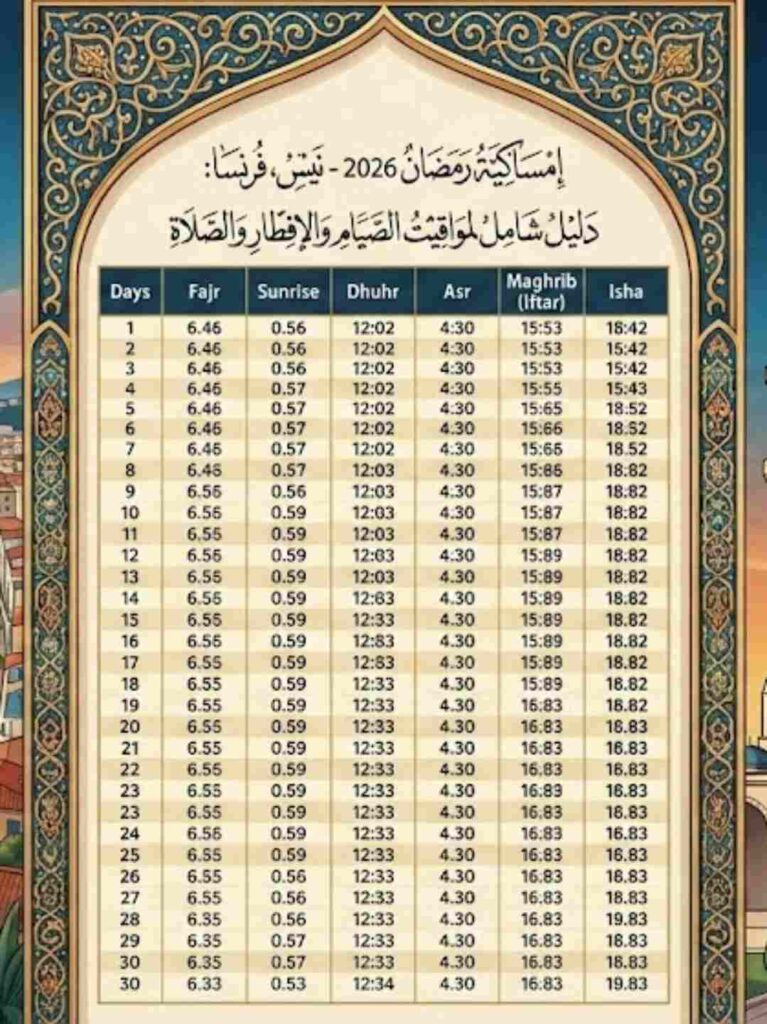 إمساكية رمضان 2026 - نيس، فرنسا:
دليل شامل لمواقيت الصيام والإفطار والصلاة
Days Fajr Sunrise Dhuhr Asr Maghrib (Iftar) Isha
1 6.46 0.56 12:02 4:30 15:53 18:42
2 6.46 0.56 12:02 4:30 15:53 15:42
3 6.46 0.56 12:02 4:30 15:53 15:42
4 6.46 0.57 12:02 4:30 15:55 15:43
5 6.46 0.57 12:02 4:30 15:65 18:52
6 6.46 0.57 12:02 4:30 15:66 18.52
7 6.46 0.57 12:02 4:30 15:66 18.52
8 6.46 0.57 12:03 4:30 15:86 18:82
9 6.56 0.56 12:03 4.30 15:87 18:82
10 6.56 0.59 12:03 4.30 15:87 18:82
11 6.55 0.59 12:03 4.30 15:87 18:82
12 6.56 0.59 12:03 4.30 15:89 18:82
13 6.56 0.59 12:03 4.30 15:89 18.82
14 6.56 0.59 12:63 4.30 15:89 18:82
15 6.55 0.59 12:33 4.30 15:89 18.82
16 6.56 0.59 12:83 4.30 15:89 18.82
17 6.55 0.59 12:83 4.30 15:89 18.82
18 6.55 0.59 12:33 4.30 15:89 18.82
19 6.55 0.59 12:33 4.30 16:83 18.82
20 6.55 0.59 12:33 4.30 16:83 16.83
21 6.55 0.59 12:33 4.30 16:83 16.83
22 6.55 0.59 12:33 4.30 16:83 16.83
23 6.55 0.59 12:33 4.30 16:83 16.83
23 6.55 0.59 12:33 4.30 16:83 16.83
24 6.56 0.59 12:33 4.30 16:83 16.83
25 6.55 0.59 12:33 4.30 16:83 16.83
26 6.55 0.56 12:33 4.30 16.83 18.83
27 6.55 0.56 12:33 4.30 16:83 18.83
28 6.35 0.56 12:33 4.30 16.83 19.83
29 6.35 0.57 12:33 4.30 16.83 18.83
30 6.35 0.57 12:33 4.30 16.83 18.83
30 6.33 0.53 12:34 4.30 16:83 19.83